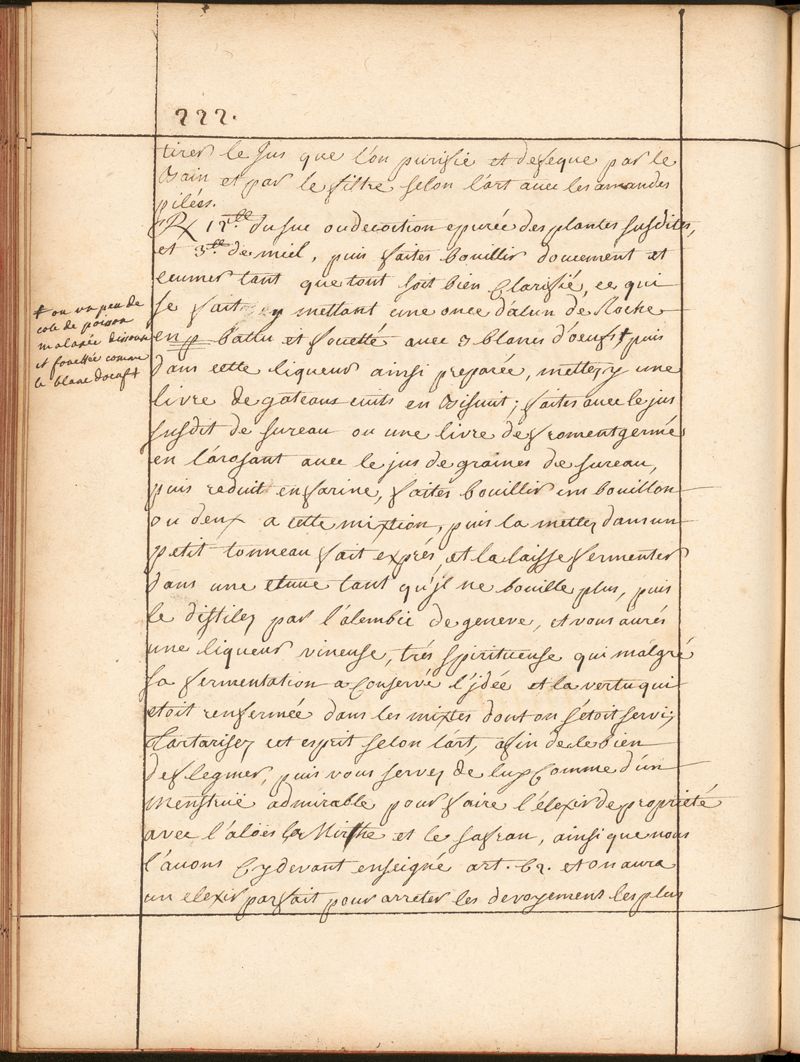 222.
tirer le Jus que l'on purifie et defeque par le
Bain et par le filtre selon l'art avec les amandes
pilées.
℞ 12.lb du suc ou decoction epurée des plantes susdites,
et 3.lb de miel, puis faites bouillir doucement et
ecumer tant que tout soit bien clarifié, ce qui
se fait en y mettant une once d'alun de Roche
en p battu et fouetté avec 3 blancs d'oeufs + puis
dans cette liqueur ainsi preparée, mettez y une
livre de gateaux cuits en Biscuit; faites avec le jus
susdit de sureau ou une livre de froment germé
en l'arosant avec le jus de graines de sureau,
puis reduit en farine, faites bouillir un bouillon
ou deux a cette mixtion, puis la mettez dans un
petit tonneau fait exprés, et la laisse fermenter
dans une etuve tant qu'jl ne bouille plus, puis
le distilez par l'alembic de geneve, et vous aurés
une liqueur vineuse, trés spiritueuse qui malgré
sa fermentation a conservé l'jdée et la vertu qui
etoit renfermée dans les mixtes dont on s'étoit servi;
Tartarisez cet esprit selon l'art, afin de le bien
deflegmer, puis vous servez de luy comme d'un
menstruë admirable pour faire l'élexir de proprieté
avec l'aloës la Mirrhe et le safran, ainsi que nous
l'avons cy devant enseigné art. 62. et on aura
un elexir parfait pour arreter les devoyement les plus
+ ou un peu de
cole de poisson
malaxée dissoute
et fouettée comme
le blanc d'oeuf +